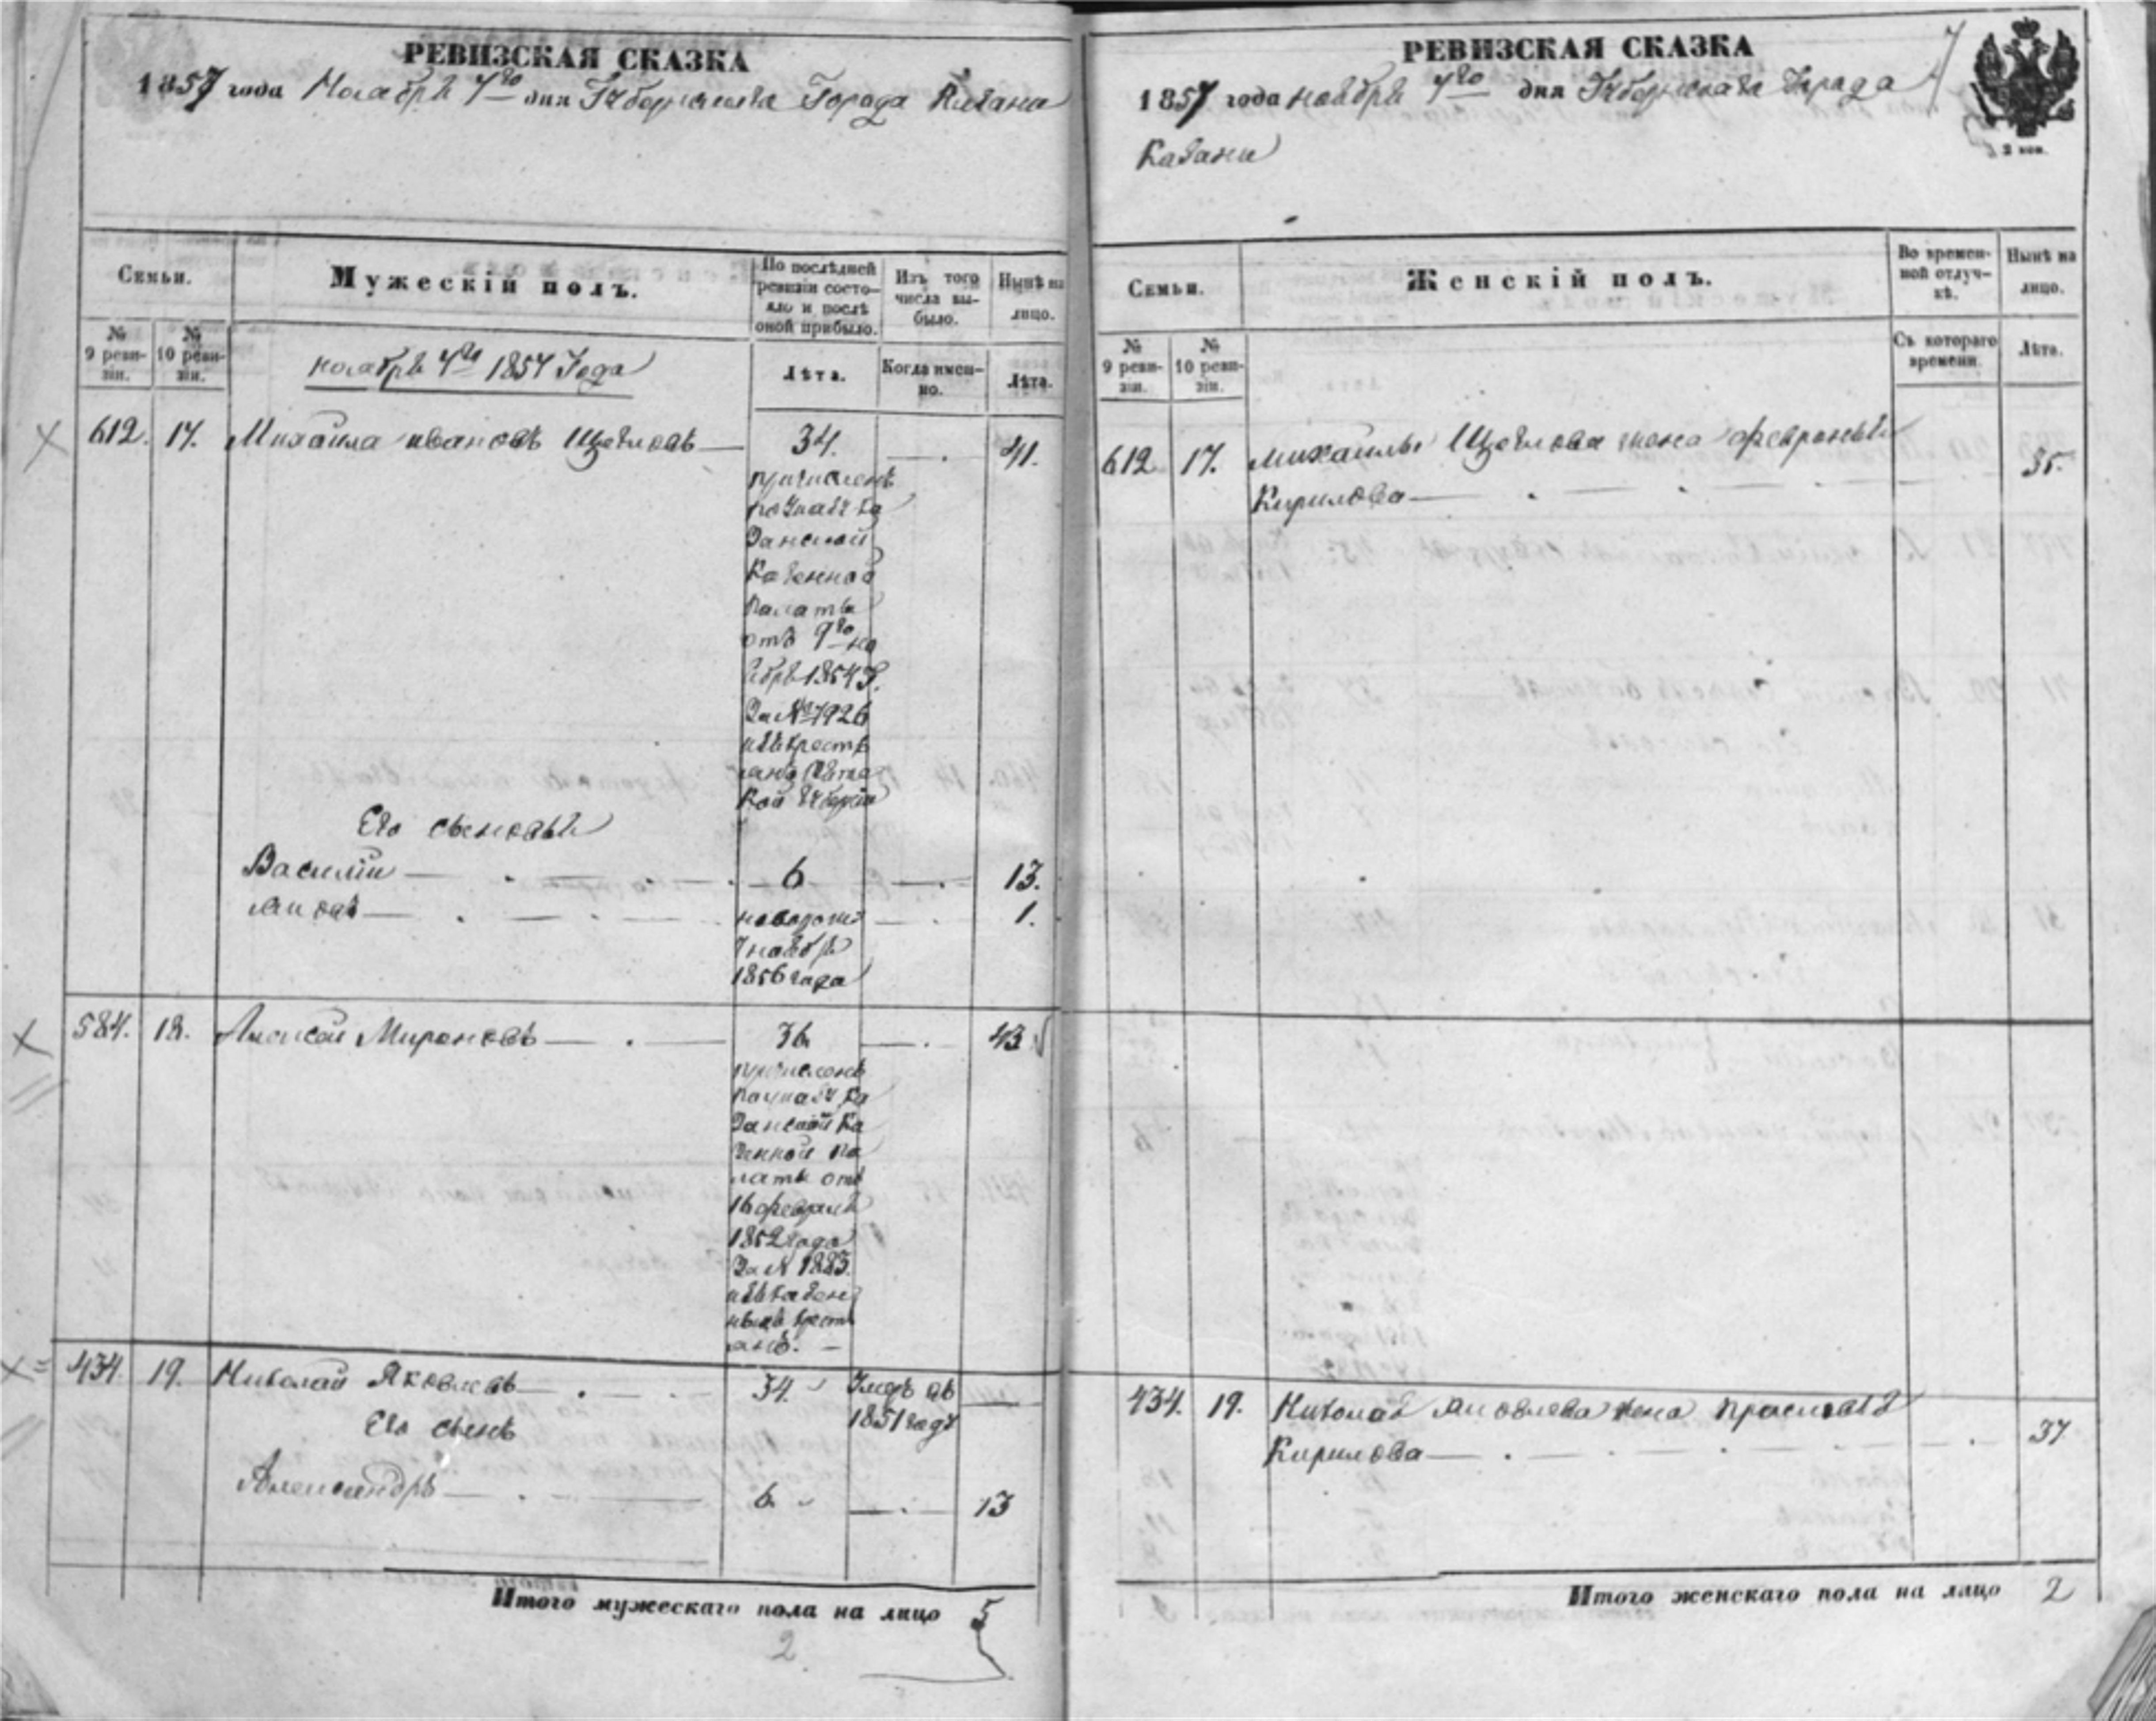 РЕВИЗСКАЯ СКАЗКА
1857 года Ноября 7го дня Губернскаго Города Казани
Семьи.
Мужескій полъ.
По послѣдней ревизіи состояло и послѣ оной прибыло.
Изъ того числа выбыло.
Нынѣ на лицо.
№ 9 ревизіи.
№ 10 ревизіи.
ноября 7го 1857 Года
Лѣта.
Когда именно.
Лѣта.
612. 17. Михаила Ивановъ Щегловъ 34. 41.
причисленъ
по указу Ка
занской
Казенной
палаты
отъ 9го но
ября 1854 г.
За № 7926
изъ крестъ
янъ Вятс
кой губерніи
Его сыновья
Василій 6 13.
Яковъ новорож 1.
7 ноября
1856 года
584. 18. Алексей Мироновъ 36 43
причисленъ
по указу Ка
занской Ка
зенной Па
латы отъ
16 февраля
1852 года
За № 1883.
изъ казен
ныхъ крестъ
янъ.
434. 19. Николай Яковлевъ 34. Умеръ въ
1851 году
Его сынъ
Александръ 6 13
Итого мужескаго пола на лицо 5
2
РЕВИЗСКАЯ СКАЗКА
1857 года ноября 7го дня Губернскаго Города
Казани
2 коп.
Семьи.
Женскій полъ.
Во временной отлучкѣ.
Нынѣ на лицо.
№ 9 ревизіи.
№ 10 ревизіи.
Съ котораго времени.
Лѣта.
612 17. Михаилы Щеглова жена Февронья
Кирилова 35.
434. 19. Николая Яковлева жена Прасковья
Кирилова 37
Итого женскаго пола на лицо 2